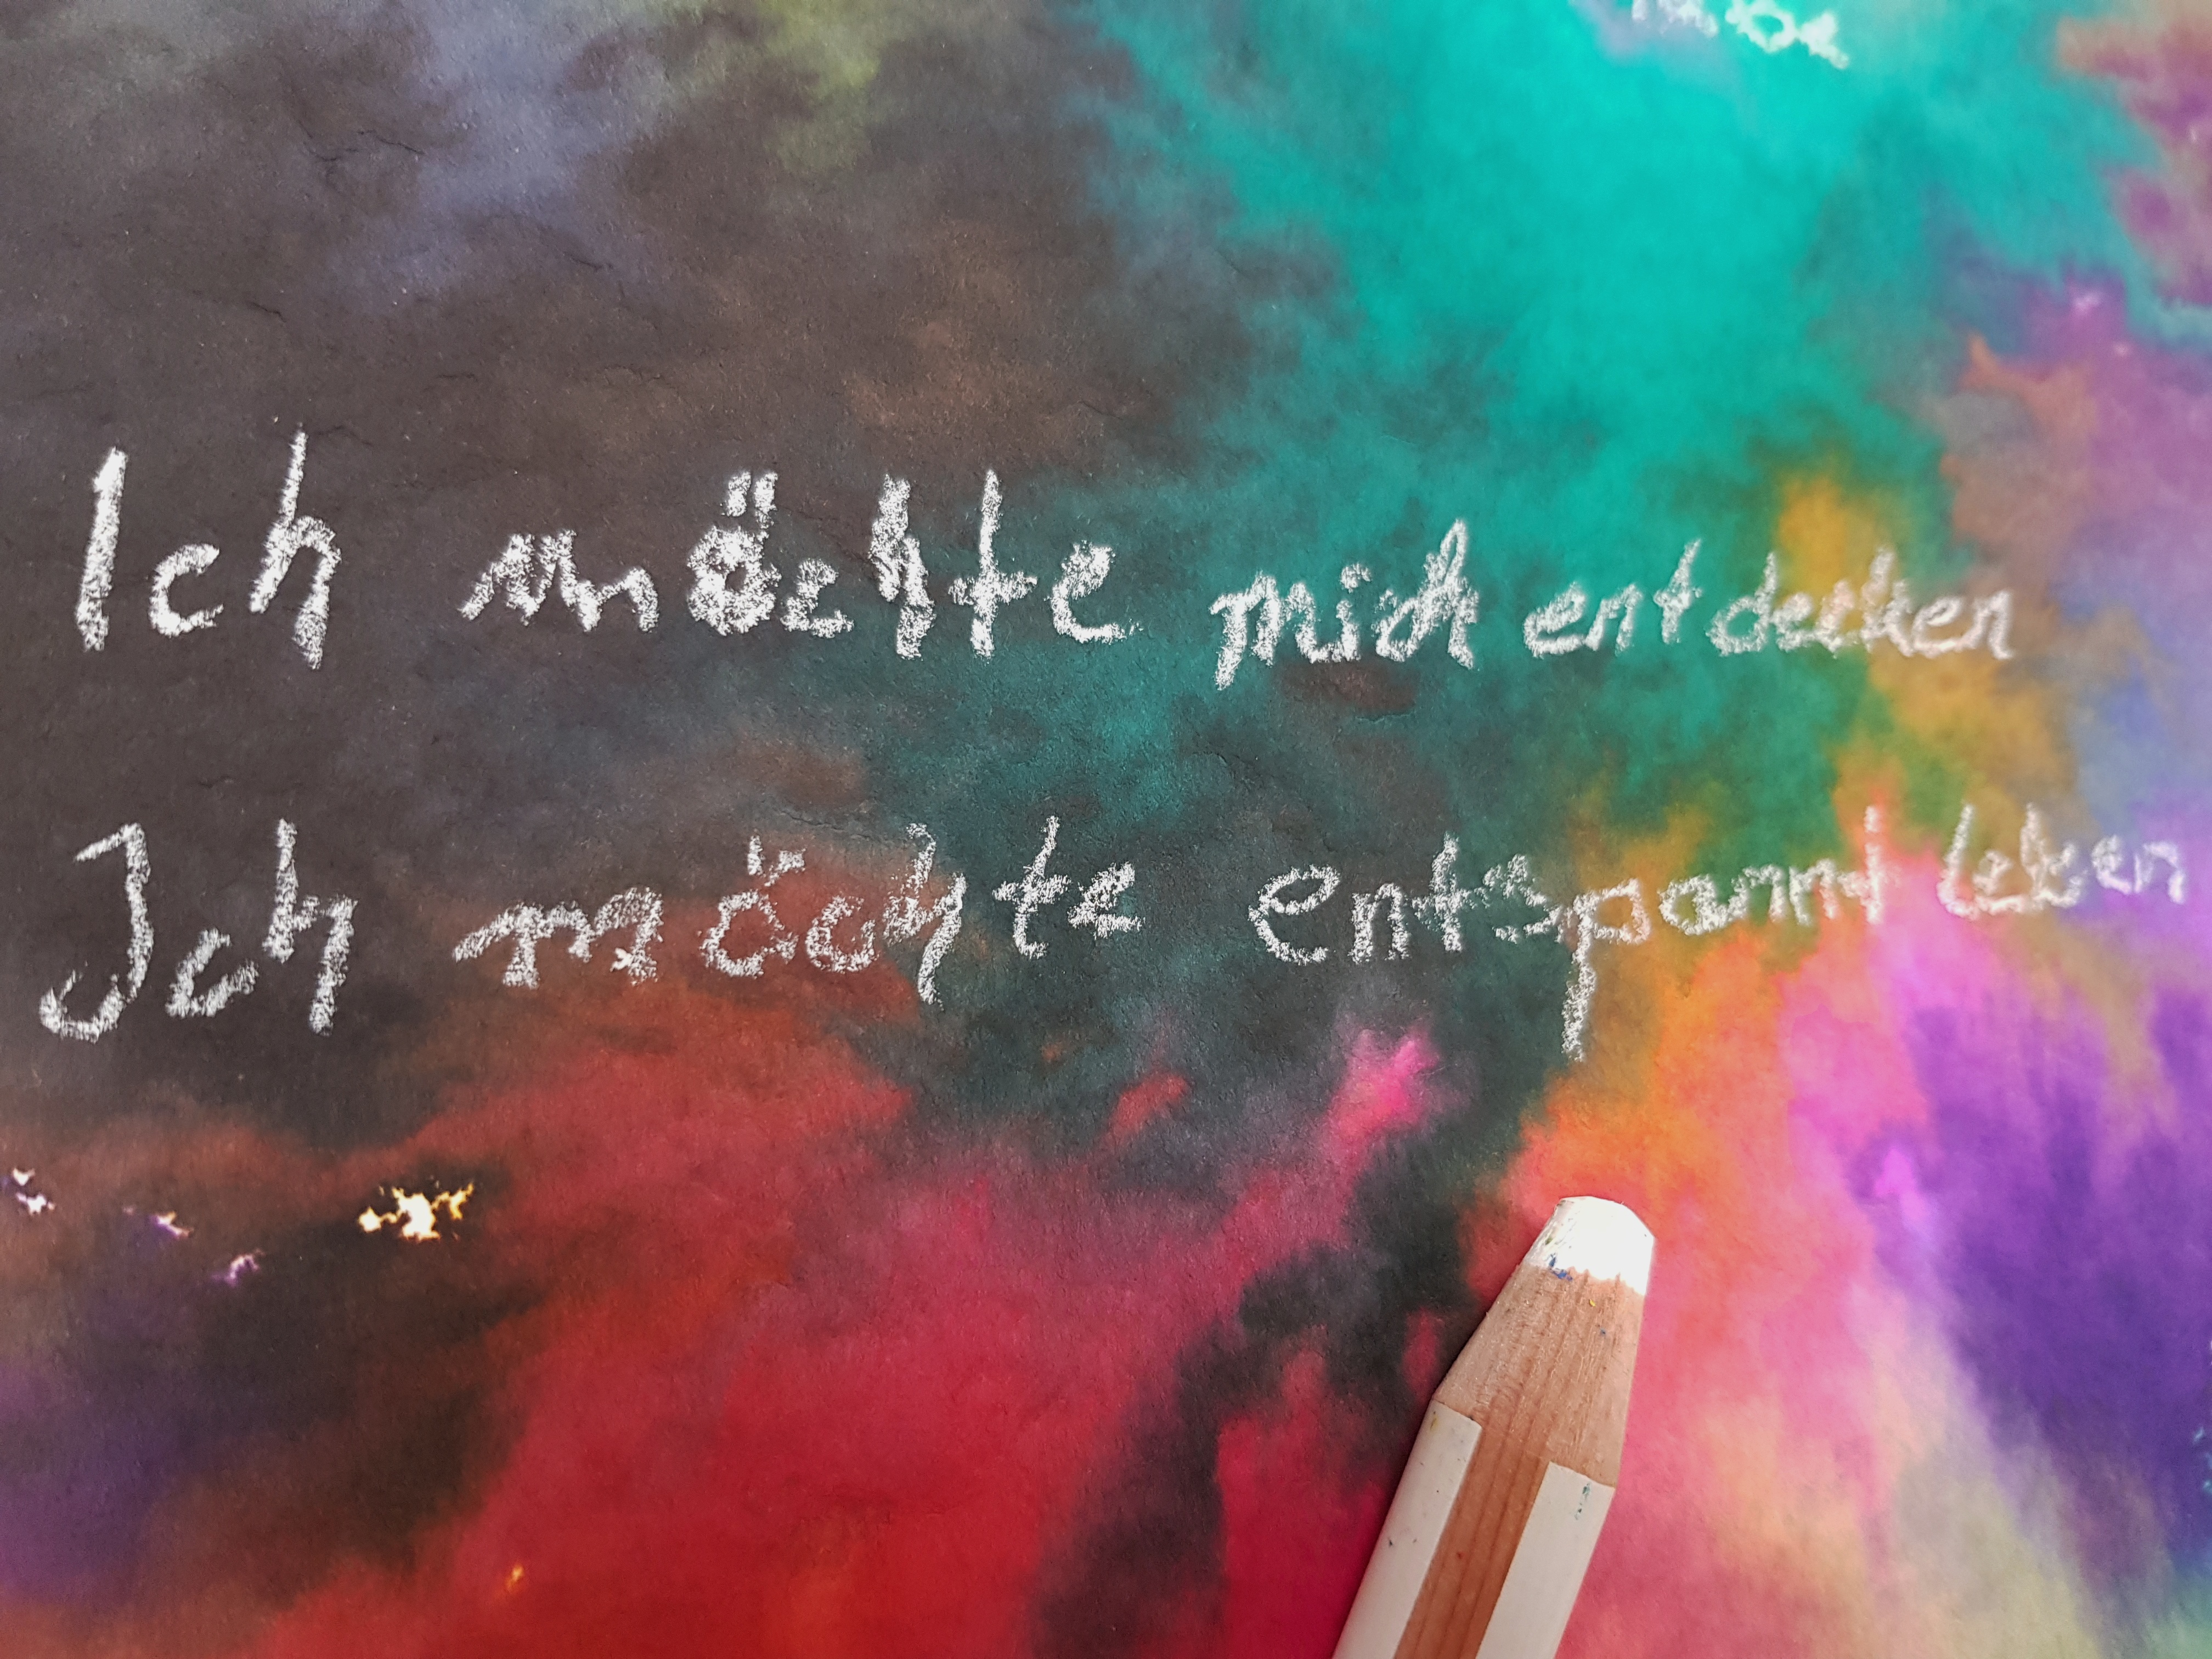 Ich möchte mich entdecken
Ich möchte entspannt leben